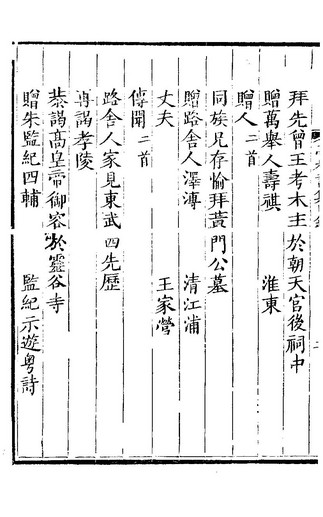 拜先曾王考木主於朝天宮後祠中
贈萬舉人壽祺 淮東
贈人二首
同族兄存愉拜黃門公墓
贈路舍人澤溥 清江浦
丈夫 王家營
傳聞二首
路舍人家見東武四先歷
再謁孝陵
恭謁高皇帝御容於靈谷寺
贈朱監紀四輔 監紀示遊粵詩